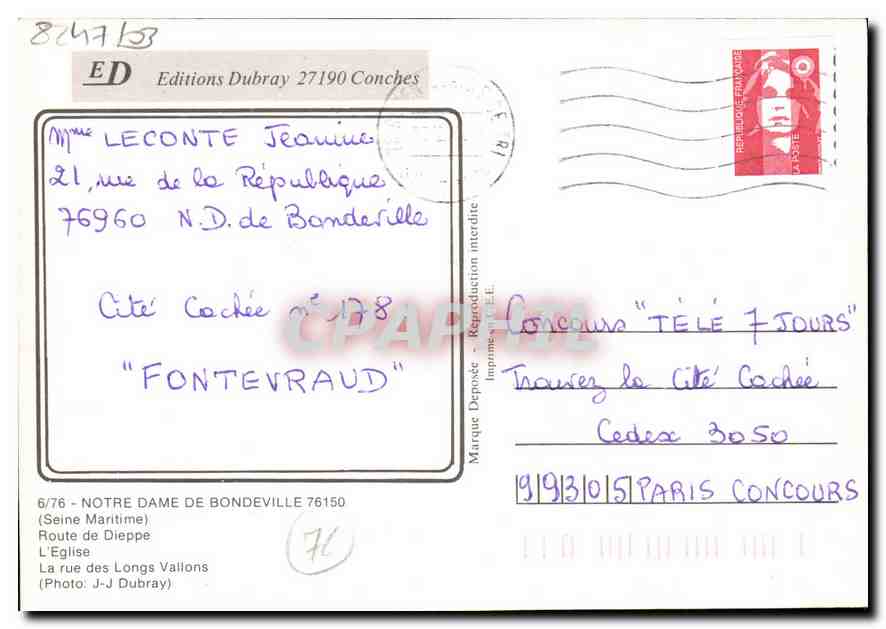 8247/53
ED Editions Dubray 27190 Conches
Mme LECONTE Jeanine
21, rue de la République
76960 N.D. de Bondeville
Cité Cachée n° 178
"FONTEVRAUD"
6/76 - NOTRE DAME DE BONDEVILLE 76150
(Seine Maritime)
Route de Dieppe
L'Eglise
La rue des Longs Vallons
(Photo: J-J Dubray)
76
Marque Déposée - Reproduction interdite
CPAPHIL
REPUBLIQUE FRANÇAISE
LA POSTE
Concours "TÉLÉ 7 JOURS"
Trouvez la Cité Cachée
Cedex 3050
99305 PARIS CONCOURS